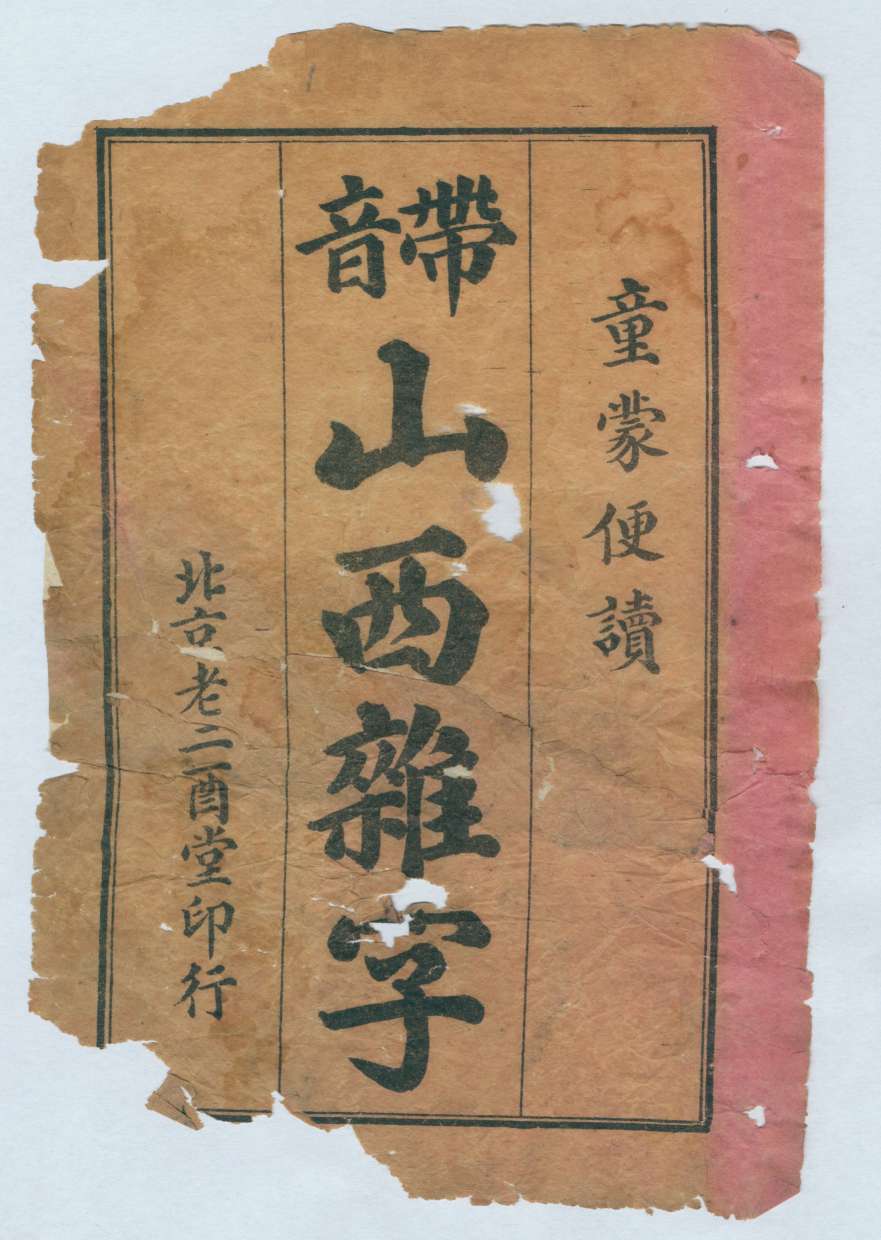 童蒙便讀
帶音
山西雜字
北京老二酉堂印行